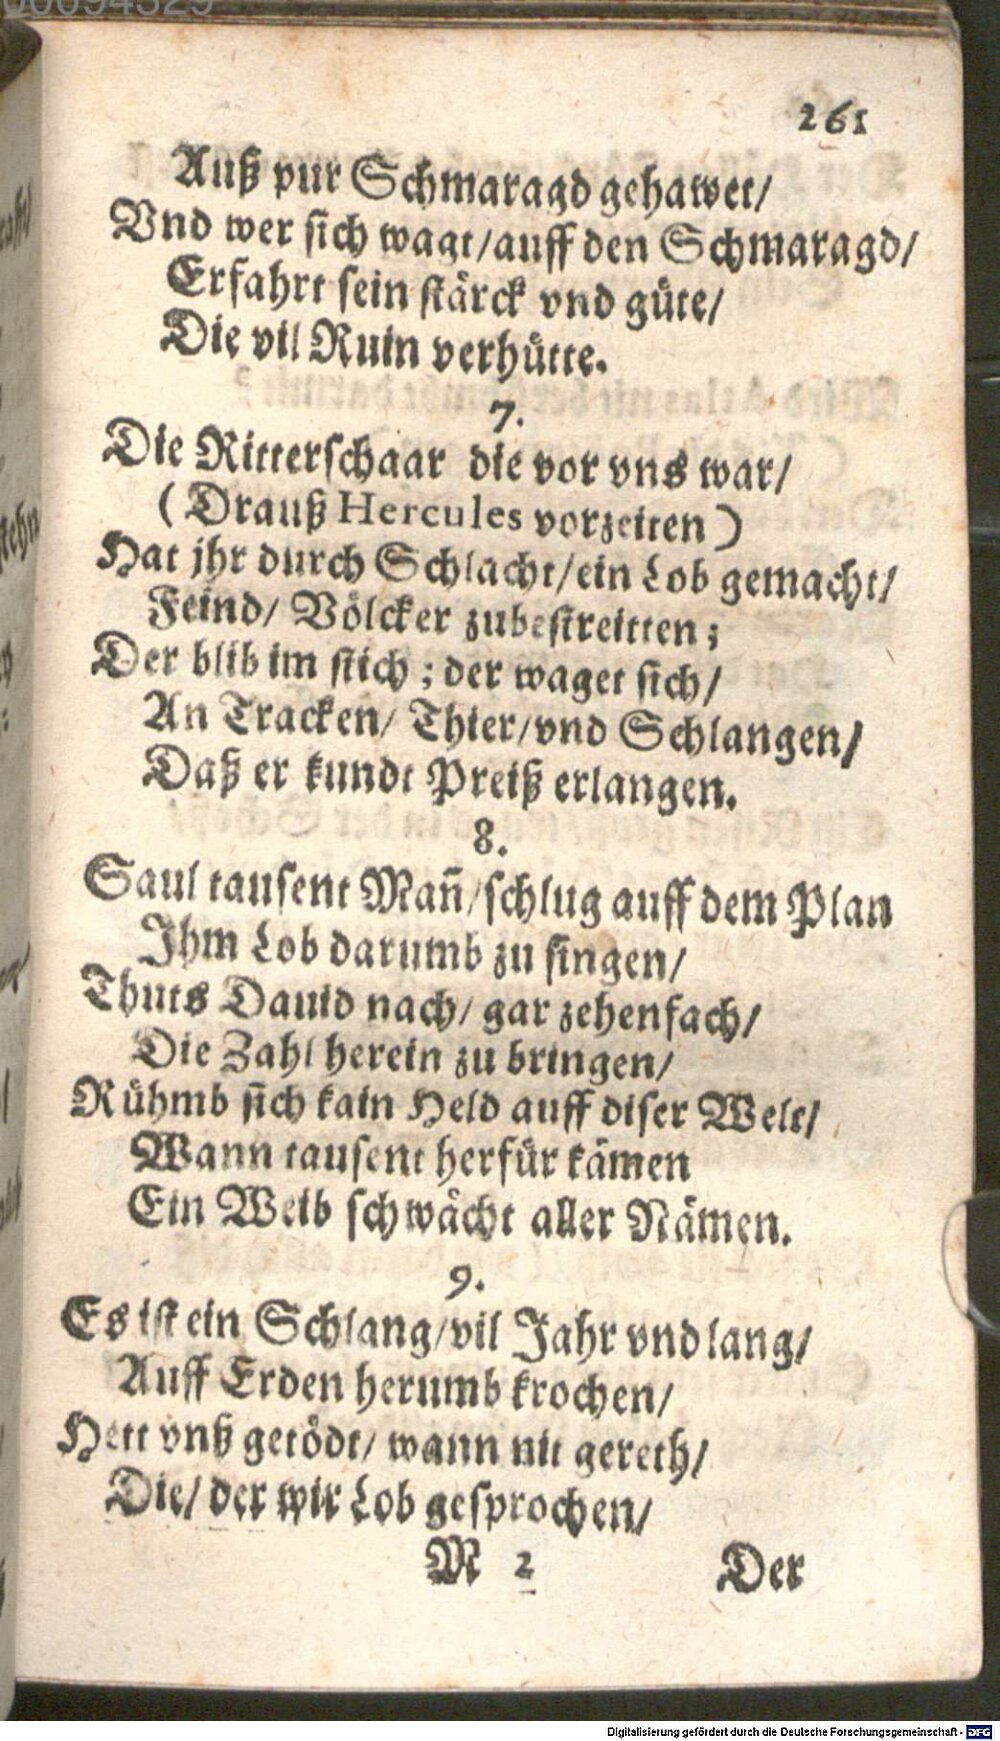 261
Auß pur Schmaragd gehawet/
Vnd wer sich wagt/auff den Schmaragd/
Erfahrt sein stärck vnd güte/
Die vil Ruin verhütte.
7.
Die Ritterschaar die vor vns war/
(Drauß Hercules vorzeiten)
Hat jhr durch Schlacht/ein Lob gemacht/
Feind/ Völcker zubestreitten;
Der blib im stich; der waget sich/
An Tracken/ Thier/vnd Schlangen/
Daß er kundt Preiß erlangen.
8.
Saul tausent Mañ/schlug auff dem Plan
Ihm Lob darumb zu singen/
Thuts Dauid nach/ gar zehenfach/
Die Zahl herein zu bringen/
Rühmb sich kain Held auff diser Welt/
Wann tausent herfür kämen
Ein Weib schwächt aller Nämen.
9.
Es ist ein Schlang/vil Jahr vnd lang/
Auff Erden herumb krochen/
Hett vnß getödt/ wann nit gereth/
Die/ der wir Lob gesprochen/
M 2 Der
Digitalisierung gefördert durch die Deutsche Forschungsgemeinschaft - DFG